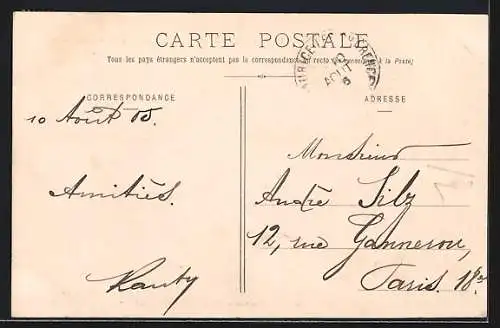 CARTE POSTALE
Tous les pays étrangers n'acceptent pas la correspondance au recto (se renseigner à la Poste)
CORRESPONDANCE
ADRESSE
10 Août 05.
Amitiés.
Monsieur
André Silz
12, rue Ganneron,
Paris. 18e
AOUT